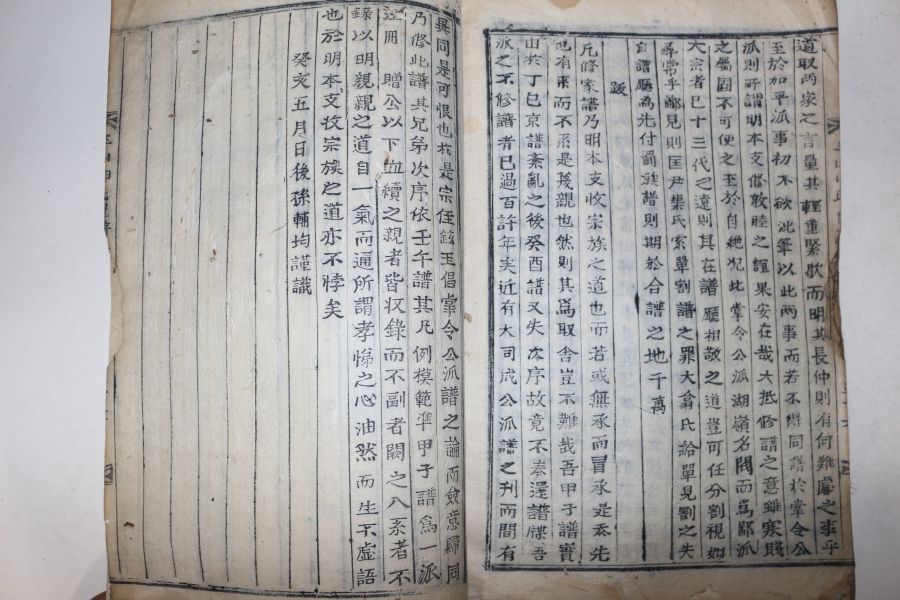 道取兩家之言量其輕重緊歇而明其長仲則有何難處之事乎
至於加平派事初不欲泚筆以此兩事而若不得同譜於掌令公
派則所謂明本支修敦睦之誼果安在哉大抵修譜之意雖寒賤
之屬固不可使之至於自絶況此掌令公派湖嶺名閥而爲鄙派
大宗者已十三代之遠則其在譜廳相敬之道豈可任分割視如
尋常乎鄙見則匡尹榘氏索單割譜之罪大翕氏給單見割之失
自譜廳爲先付罰族譜則期於合譜之地千萬
跋
凡修家譜乃明本支收宗族之道也而若或無承而冒承是忝先
也有來而不系是蔑親也然則其爲取舍豈不難哉吾甲子譜實
由於丁巳京譜紊亂之後癸酉譜又失次序故竟不奉還譜牒吾
派之不修譜者已過百許年矣近有大司成公派譜之刊而間有
異同是可恨也於是宗侄鉉玉倡掌令公派譜之論而僉意歸同
乃修此譜其兄弟次序依壬午譜其凡例模範準甲子譜爲一派
冊 贈公以下血續之親者皆収錄而不副者闕之八系者不
錄以明親親之道自一氣而通所謂孝悌之心油然而生不虛語
也於明本支收宗族之道亦不悖矣
癸亥五月日後孫輔均謹識